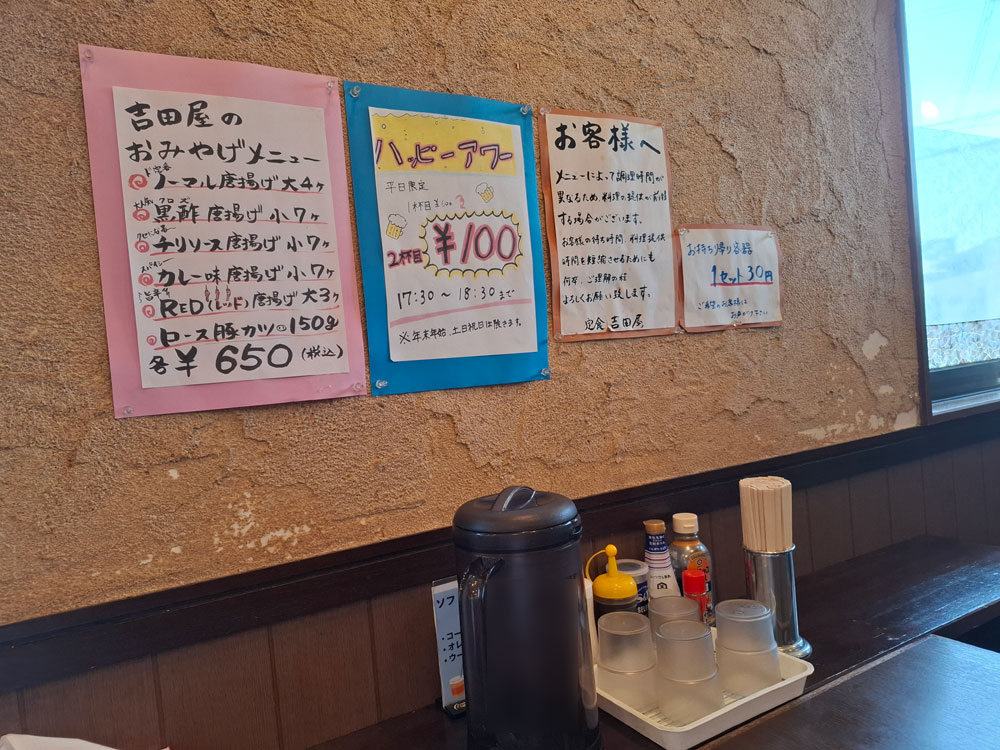 吉田屋の
おみやげメニュー
ド定番
ノーマル唐揚げ大4ヶ
大人気 クロズ
黒酢唐揚げ小7ヶ
クセになる
チリソース唐揚げ小7ヶ
スパイシー
カレー味唐揚げ小7ヶ
RED(レッド)唐揚げ大3ヶ
ロース豚カツ 150g
各¥650(税込)
ハッピーアワー
平日限定
1杯目
2杯目 ¥100
17:30〜18:30まで
※年末年始、土日祝日は除きます。
お客様へ
メニューによって調理時間が
異なるため、料理の提供が前後
する場合がございます。
お客様の待ち時間、料理提供
時間を短縮させるためにも
何卒、ご理解の程
よろしくお願い致します。
定食 吉田屋
お持ち帰り容器
1セット30円
ご希望のお客様は
お声がけ下さい
ソフ
・コー
・オレ
・ウー